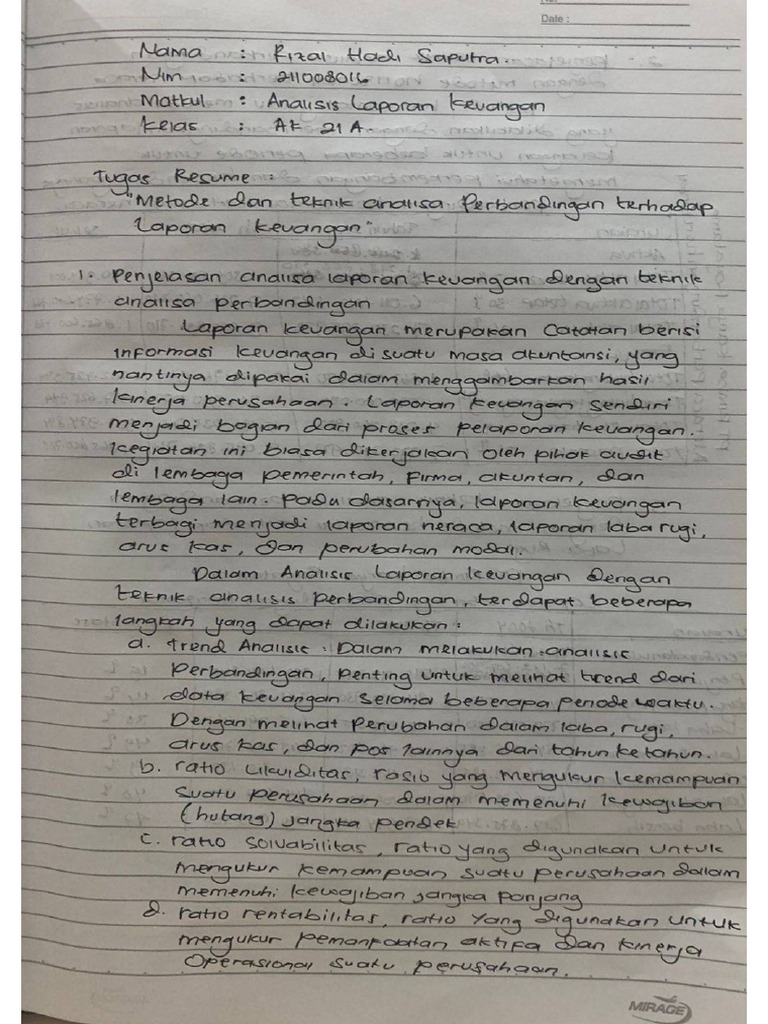 Date :
Nama : Rizal Hadi Saputra.
Nim : 211008016
Matkul : Analisis Laporan Keuangan
Kelas : AK 21 A.
Tugas Resume :
"Metode dan teknik analisa Perbandingan terhadap
Laporan Keuangan"
1. Penjelasan analisa laporan keuangan dengan teknik
analisa perbandingan
Laporan keuangan merupakan Catatan berisi
informasi keuangan di suatu masa akuntansi, yang
nantinya dipakai dalam menggambarkan hasil
kinerja perusahaan. Laporan keuangan sendiri
menjadi bagian dari proses pelaporan keuangan.
Kegiatan ini biasa dikerjakan oleh pihak audit
di lembaga pemerintah, firma, akuntan, dan
lembaga lain. Pada dasarnya, laporan keuangan
terbagi menjadi laporan neraca, laporan laba rugi,
arus kas, dan perubahan modal.
Dalam Analisis Laporan keuangan dengan
teknik analisis perbandingan, terdapat beberapa
langkah yang dapat dilakukan :
a. Trend Analisis : Dalam melakukan analisis
Perbandingan, penting untuk melihat trend dari
data keuangan selama beberapa periode waktu.
Dengan melihat Perubahan dalam laba, rugi,
arus kas, dan pos lainnya dari tahun ke tahun.
b. ratio Likuiditas, rasio yang mengukur kemampuan
suatu perusahaan dalam memenuhi kewajiban
(hutang) jangka pendek
c. ratio solvabilitas, ratio yang digunakan untuk
mengukur kemampuan suatu perusahaan dalam
memenuhi kewajiban jangka panjang
d. ratio rentabilitas, ratio yang digunakan untuk
mengukur pemanfaatan aktifa dan kinerja
Operasional suatu perusahaan.
MIRAGE